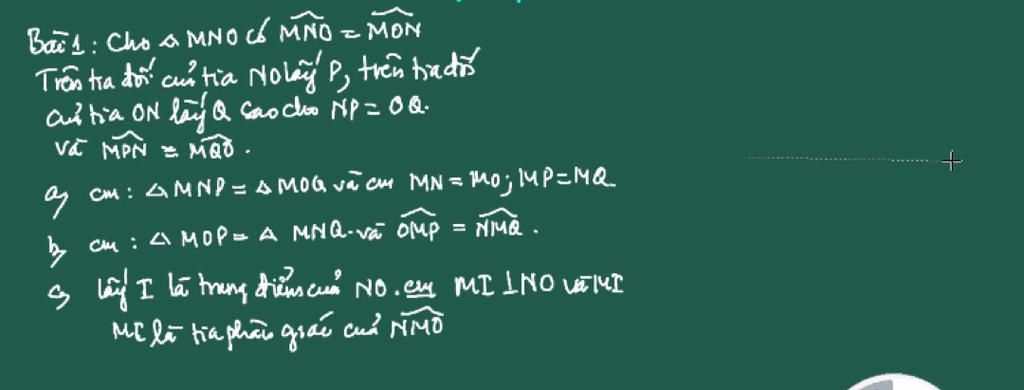 Bài 1: Cho △ MNO có MNO = MON
Trên tia đối của tia NO lấy P, trên tia đối
của tia ON lấy Q sao cho NP = OQ.
và MPN = MQO.
a, cm: △ MNP = △ MOQ và cm MN = MO; MP = MQ
b, cm: △ MOP = △ MNQ. và OMP = NMQ.
c, lấy I là trung điểm của NO. cm MI ⊥ NO và MI
MI là tia phân giác của NMO